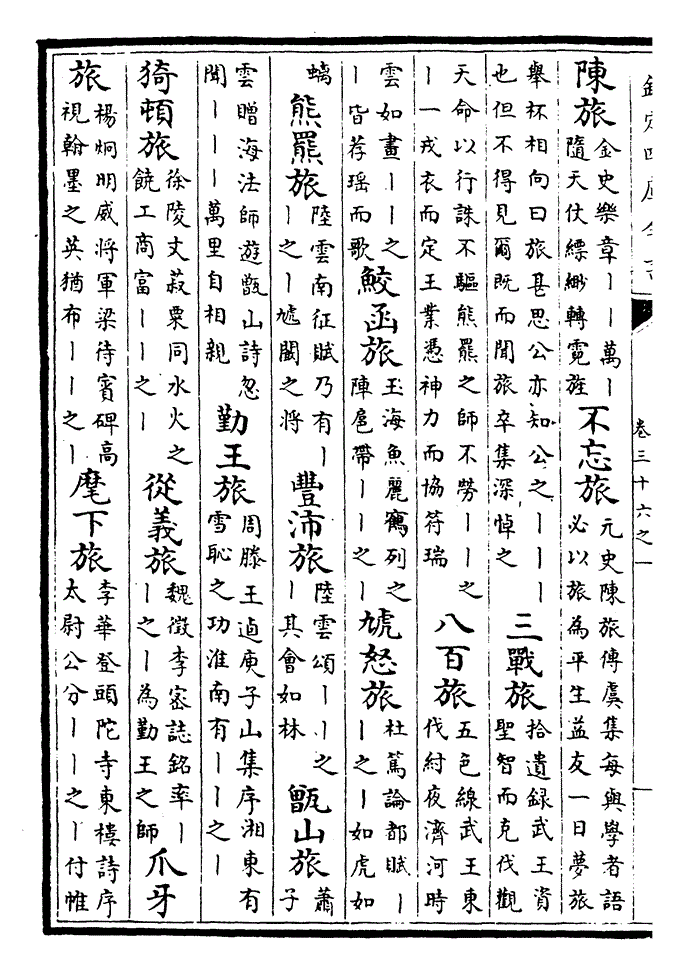 欽定四庫全書
卷三十六之一
陳旅 金史樂章｜｜萬｜
隨天仗縹緲轉霓旌
不忘旅 元史陳旅傳虞集每與學者語
必以旅為平生益友一日夢旅
舉杯相向曰旅甚思公亦知公之｜｜｜
也但不得見爾既而聞旅卒集深悼之
三戰旅 拾遺録武王資
聖智而克伐觀
天命以行誅不驅熊羆之師不勞｜｜之
｜一戎衣而定王業憑神力而協符瑞
八百旅 五色線武王東
伐紂夜濟河時
雲如畫｜｜之
｜皆荐瑶而歌
鮫函旅 玉海魚麗鸛列之
陣扈帶｜｜之｜
虓怒旅 杜篤論都賦｜
｜之｜如虎如
螭
熊羆旅 陸雲南征賦乃有｜
｜之｜虓闞之將
豐沛旅 陸雲頌｜｜之
｜其會如林
甑山旅 蕭
子
雲贈海法師遊甑山詩忽
聞｜｜｜萬里自相親
勤王旅 周滕王逌庾子山集序湘東有
雪恥之功淮南有｜｜之｜
猗頓旅 徐陵文菽粟同水火之
饒工商富｜｜之｜
從義旅 魏徵李宻誌銘率｜
｜之｜為勤王之師
爪牙
旅 楊炯明威將軍梁待賓碑高
視翰墨之英猶布｜｜之｜
麾下旅 李華登頭陀寺東樓詩序
太尉公分｜｜之｜付帷